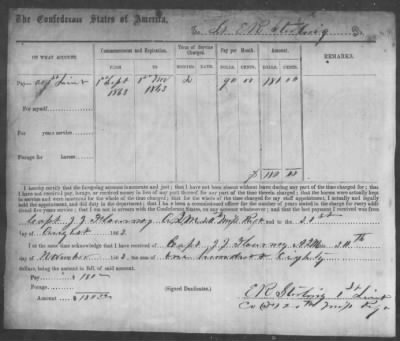 The Confederate States of America,
To Lt E R Dr.
ON WHAT ACCOUNT.
Commencement and Expiration.
Term of Service Charged.
Pay per Month.
Amount.
REMARKS.
FROM
TO
MONTHS. DAYS.
DOLLS. CENTS.
DOLLS. CENTS.
Pay— 1st Sept 1863 1st Nov 1863 2 90 00 180 00
For myself
For years service
Forage for horses
$ 180 00
I hereby certify that the foregoing account is accurate and just; that I have not been absent without leave during any part of the time charged for; that I
have not received pay, forage, or received money in lieu of any part thereof for any part of the time therein charged; that the horses were actually kept
in service and were mustered for the whole of the time charged; that for the whole of the time charged for my staff appointment, I actually and legally
held the appointment, and did duty in the department; that I have been a commissioned officer for the number of years stated in the charge for every additional
five years service; that I am not in arrears with the Confederate States, on any account whatsoever; and that the last payment I received was from
Capt. J. J. and to the 31st
day of August 1863.
I at the same time acknowledge that I have received of Capt J. J.
day of November 1863, the sum of One hundred & Eighty
dollars, being the amount in full of said account.
Pay $ 180
Forage
Amount $ 180 00
(Signed Duplicates.)
E R 1st Lieut
Co